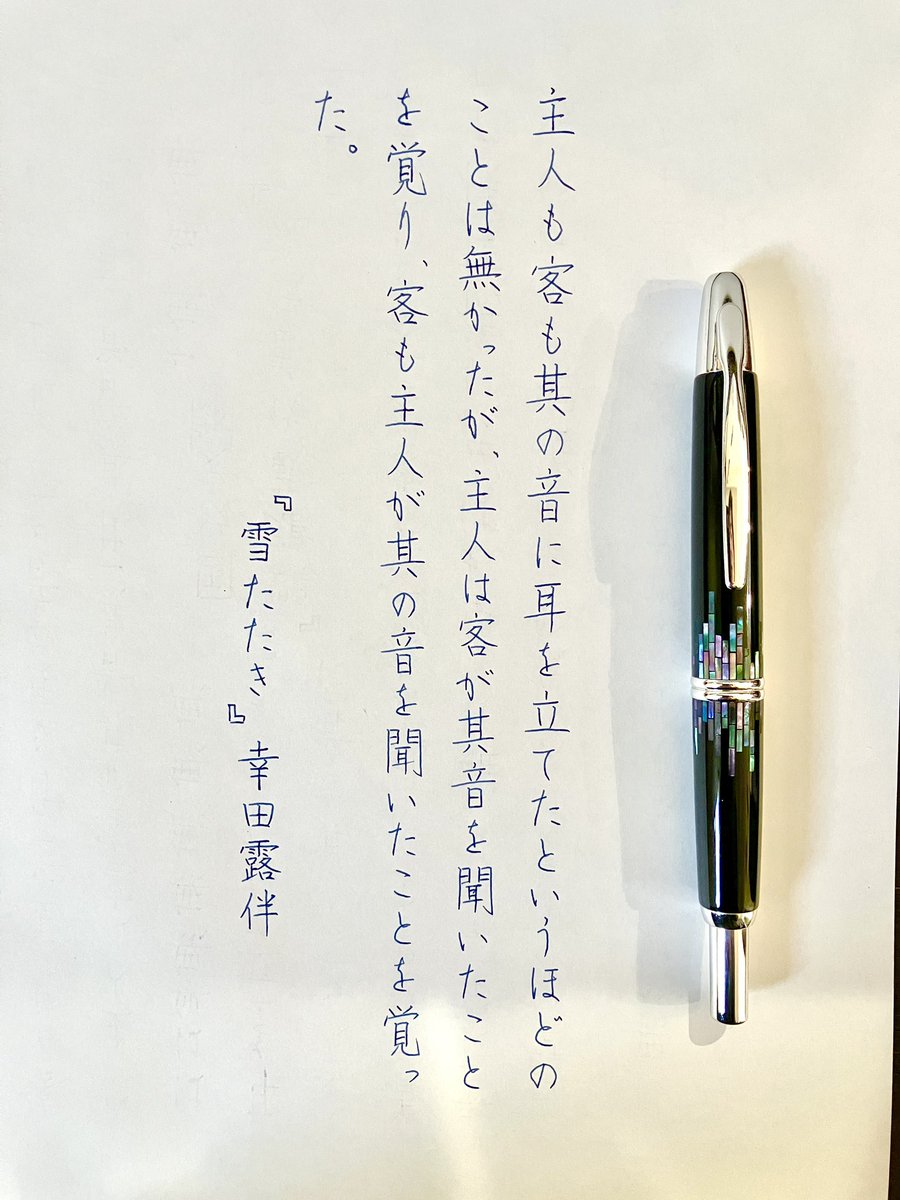 主人も客も其の音に耳を立てたというほどの
ことは無かったが、主人は客が其音を聞いたこと
を覚り、客も主人が其の音を聞いたことを覚っ
た。
『雪たたき』幸田露伴